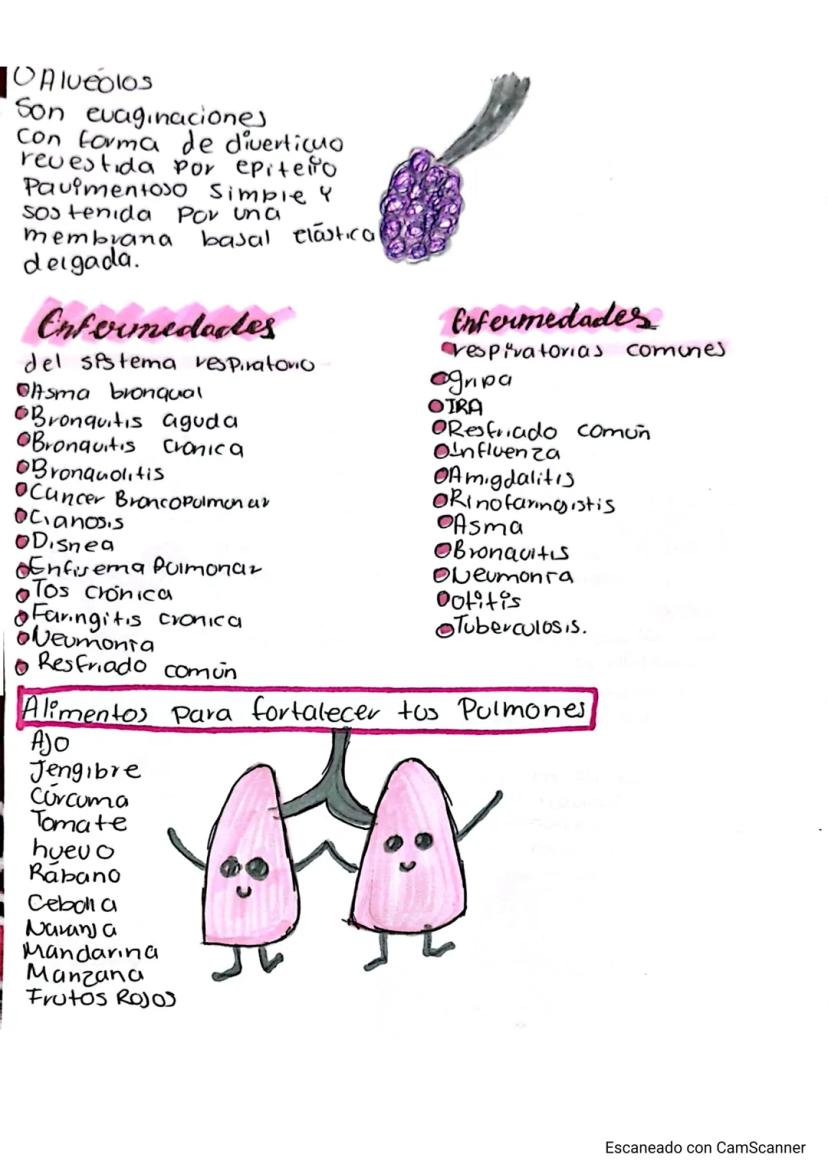 Alveólos
Son evaginaciones
con forma de diverticuo
revestida por epiteño
Pavimentoso Simple y
sostenida por una
membrana basal elástica
delgada.
Enfermedades
del sistema respiratorio
Asma bronqual
Bronquitis aguda
Bronquitis cronica
Bronquolitis
Cancer Broncopulmonar
Cianosis
Disnea
Enfisema Pulmonar
Tos crónica
Faringitis cronica
Neumonía
Resfriado común
Enfermedades
respiratorias comunes
gripa
IRA
Resfriado común
Influenza
Amigdalitis
Rinofaringistis
Asma
Bronquitis
Neumonía
Otitis
Tuberculosis.
Alimentos para fortalecer tus Pulmones
Ajo
Jengibre
Cúrcuma
Tomate
huevo
Rábano
Cebolla
Naranja
Mandarina
Manzana
Frutos Rojos
Escaneado con CamScanner